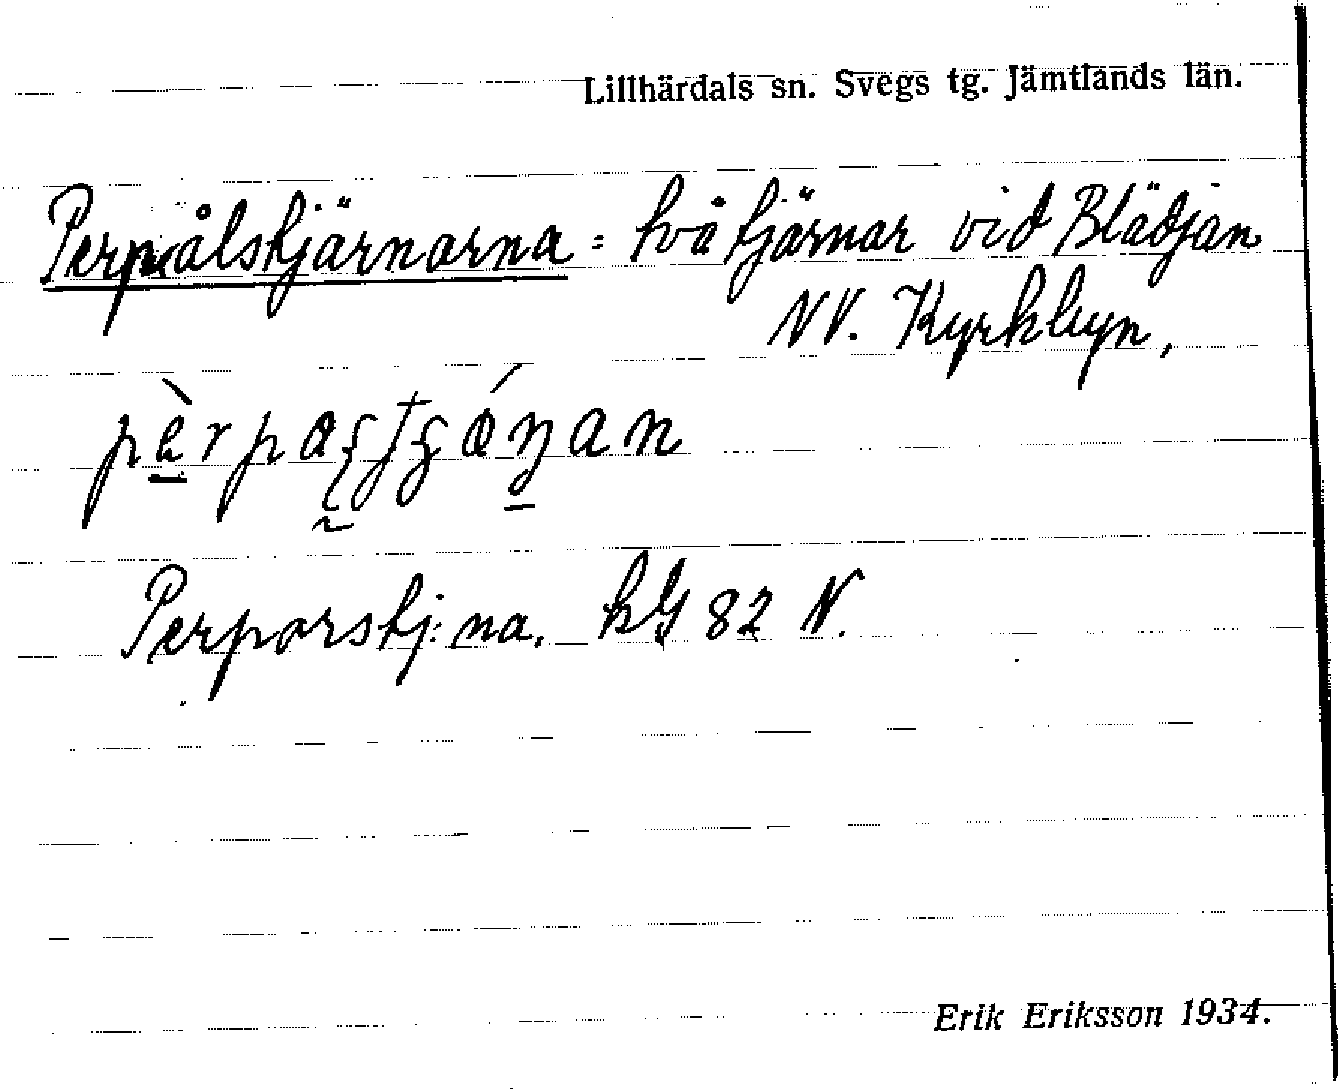 Lillhärdals sn. Svegs tg. Jämtlands län.
Perpålstjärnarna = två tjärnar vid Blädjan
NV. Kyrkbyn,
Perporstj:na. kG 82 N.
Erik Eriksson 1934.